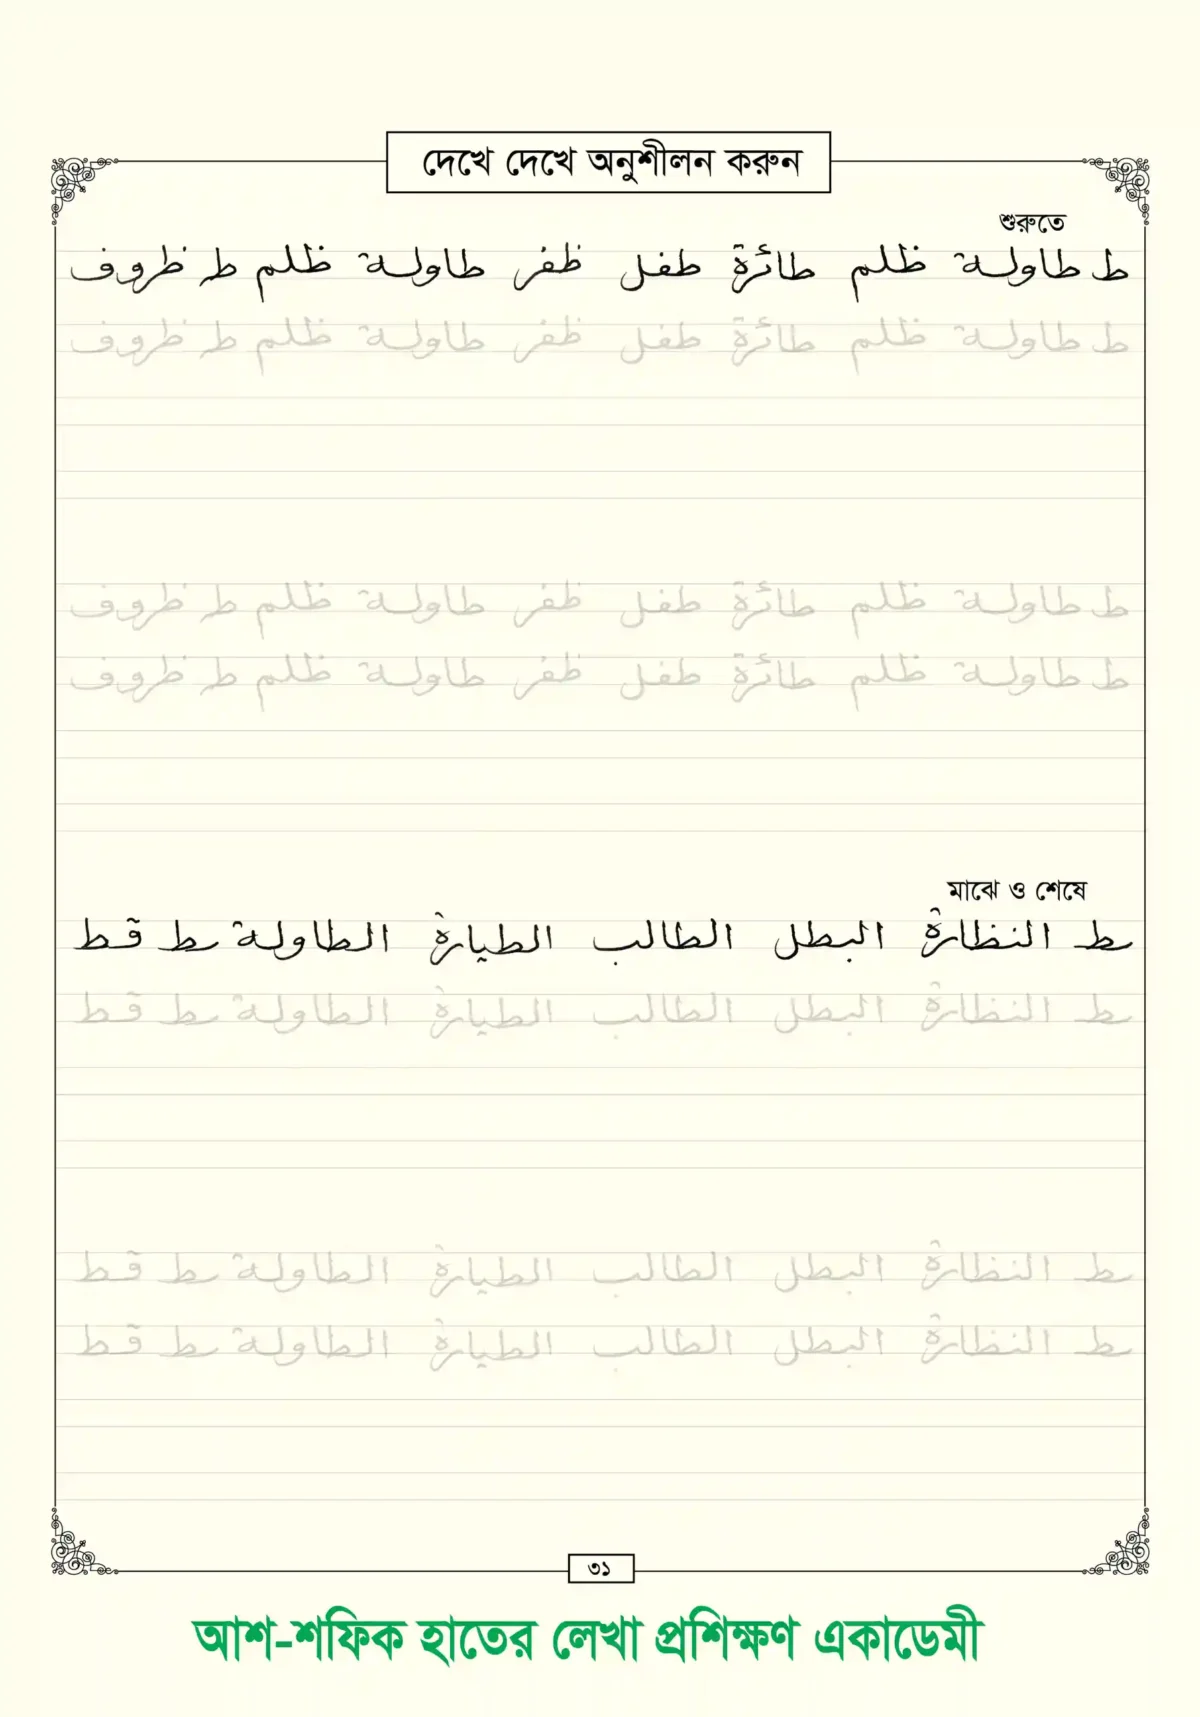 দেখে দেখে অনুশীলন করুন
শুরুতে
ط طاولة ظلم طائرة طفل ظفر طاولة ظلم ط ظروف
ط طاولة ظلم طائرة طفل ظفر طاولة ظلم ط ظروف
ط طاولة ظلم طائرة طفل ظفر طاولة ظلم ط ظروف
ط طاولة ظلم طائرة طفل ظفر طاولة ظلم ط ظروف
মাঝে ও শেষে
ـط النظارة البطل الطالب الطيارة الطاولة ـط قط
ـط النظارة البطل الطالب الطيارة الطاولة ـط قط
ـط النظارة البطل الطالب الطيارة الطاولة ـط قط
ـط النظارة البطل الطالب الطيارة الطاولة ـط قط
৩১
আশ-শফিক হাতের লেখা প্রশিক্ষণ একাডেমী